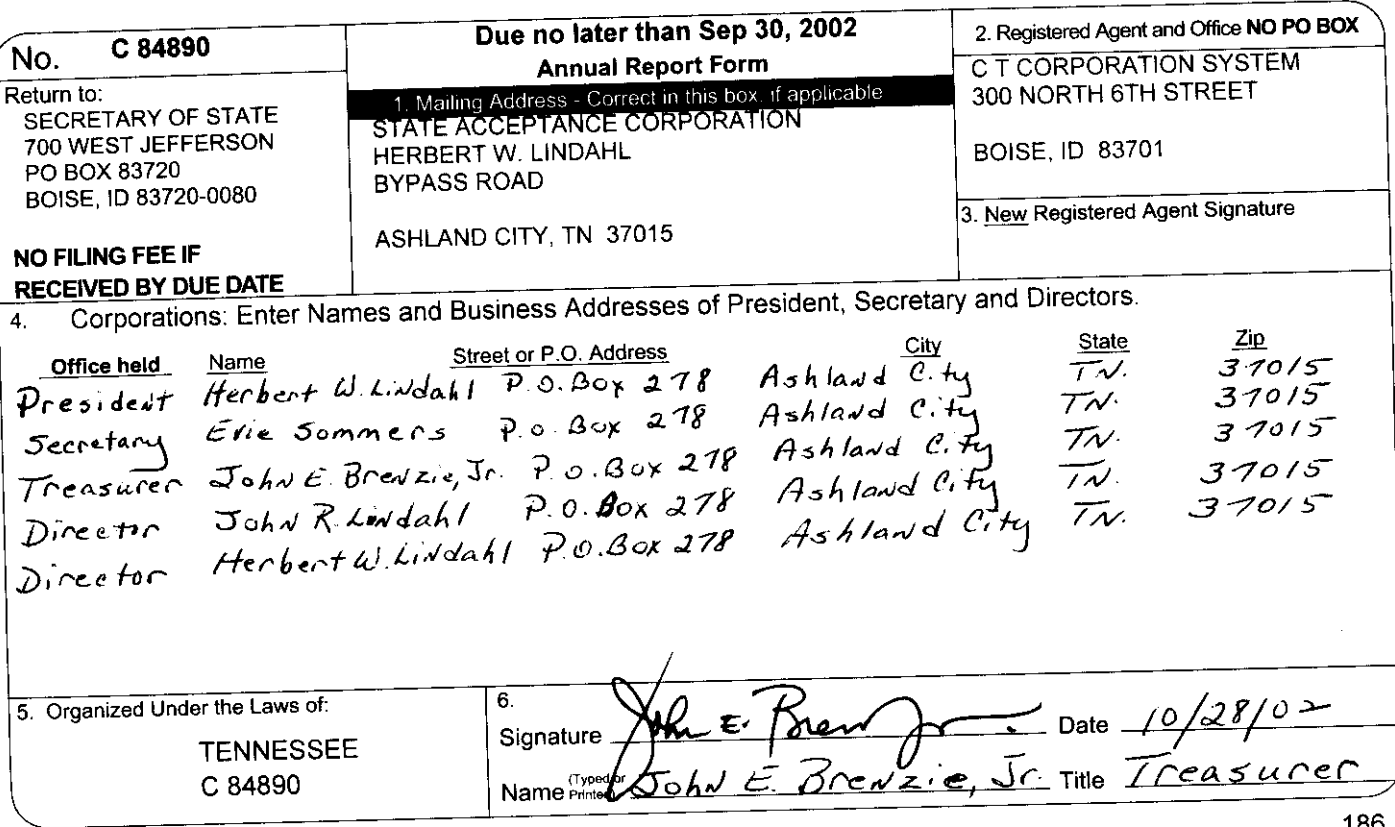 No. C 84890
Return to:
SECRETARY OF STATE
700 WEST JEFFERSON
PO BOX 83720
BOISE, ID 83720-0080
NO FILING FEE IF
RECEIVED BY DUE DATE
Due no later than Sep 30, 2002
Annual Report Form
1. Mailing Address - Correct in this box, if applicable
STATE ACCEPTANCE CORPORATION
HERBERT W. LINDAHL
BYPASS ROAD
ASHLAND CITY, TN 37015
2. Registered Agent and Office NO PO BOX
C T CORPORATION SYSTEM
300 NORTH 6TH STREET
BOISE, ID 83701
3. New Registered Agent Signature
4. Corporations: Enter Names and Business Addresses of President, Secretary and Directors.
Office held Name Street or P.O. Address City State Zip
President Herbert W. Lindahl P.O. Box 278 Ashland City TN. 37015
Secretary Evie Sommers P.O. Box 278 Ashland City TN. 37015
Treasurer John E. Brenzie, Jr. P.O. Box 278 Ashland City TN. 37015
Director John R. Lindahl P.O. Box 278 Ashland City TN. 37015
Director Herbert W. Lindahl P.O. Box 278 Ashland City TN. 37015
5. Organized Under the Laws of:
TENNESSEE
C 84890
6.
Signature John E. Bren Jr. Date 10/28/02
Name (Typed or Printed) John E. Brenzie, Jr. Title Treasurer
186